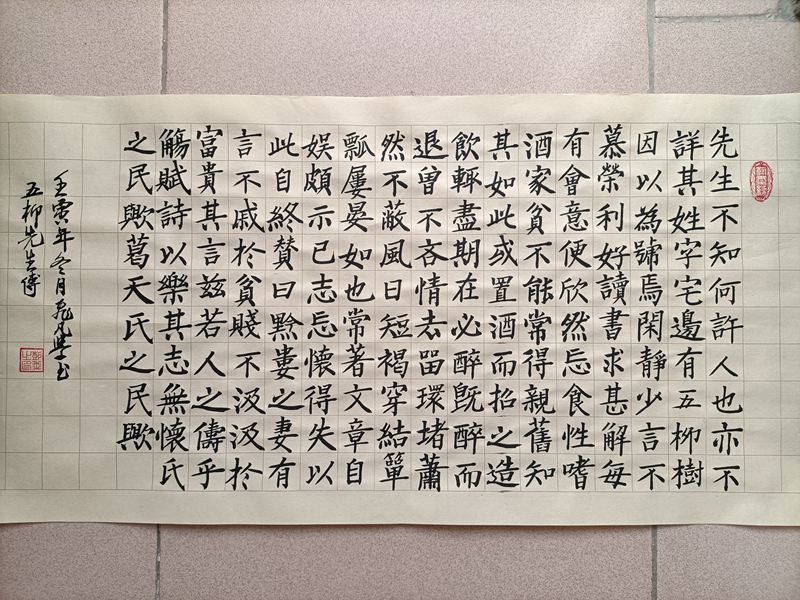 先生不知何許人也亦不
詳其姓字宅邊有五柳樹
因以為號焉閑靜少言不
慕榮利好讀書求甚解每
有會意便欣然忘食性嗜
酒家貧不能常得親舊知
其如此或置酒而招之造
飲輒盡期在必醉既醉而
退曾不吝情去留環堵蕭
然不蔽風日短褐穿結簞
瓢屢晏如也常著文章自
娛頗示己志忘懷得失以
此自終贊曰黔婁之妻有
言不戚於貧賤不汲汲於
富貴其言茲若人之儔乎
觴賦詩以樂其志無懷氏
之民歟葛天氏之民歟
壬寅年冬月飛凡學书
五柳先生傳